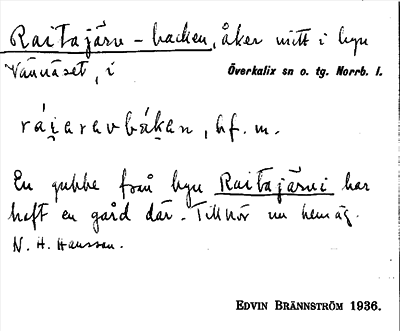 Raitajärv-backen, åker mitt i byn
Vännäset, i Överkalix sn o. tg. Norrb. l.
bf. m.
En gubbe från byn Raitajärvi har
haft en gård där. Tillhör nu hemäg.
N. H. Hansson.
EDVIN BRÄNNSTRÖM 1936.